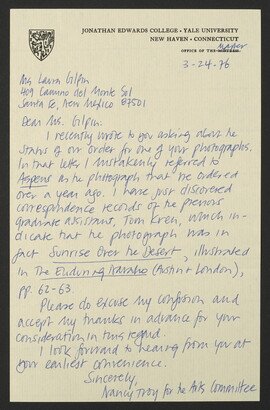 JONATHAN EDWARDS COLLEGE · YALE UNIVERSITY
NEW HAVEN · CONNECTICUT
OFFICE OF THE MASTER
3-24-76
Ms Laura Gilpin
409 Camino del Monte Sol
Santa Fe, New Mexico 87501
Dear Ms. Gilpin:
I recently wrote to you asking about the
status of our order for one of your photographs.
In that letter I mistakenly referred to
Aspens as the photograph that we ordered
over a year ago. I have just discovered
correspondence records of the previous
graduate assistant, Tom Kren, which in-
dicate that the photograph was in
fact Sunrise Over the Desert, illustrated
in The Enduring Navaho (Austin & London),
pp. 62-63.
Please do excuse my confusion and
accept my thanks in advance for your
consideration in this regard.
I look forward to hearing from you at
your earliest convenience.
Sincerely,
Nancy Troy for the Arts Committee